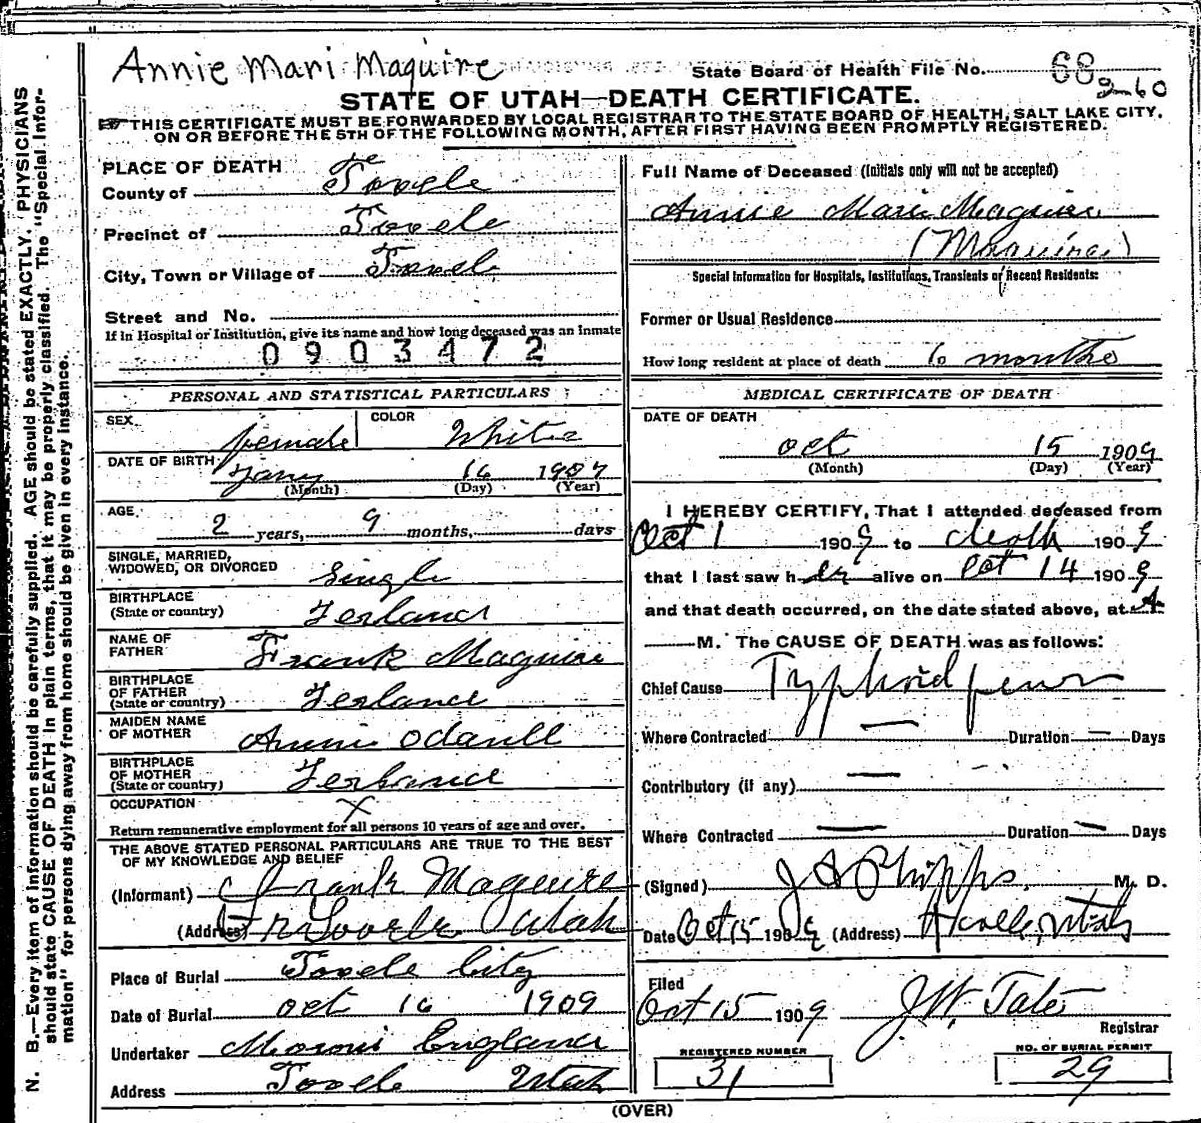 Annie Mari Maguire
State Board of Health File No. 68
2-60
STATE OF UTAH—DEATH CERTIFICATE.
THIS CERTIFICATE MUST BE FORWARDED BY LOCAL REGISTRAR TO THE STATE BOARD OF HEALTH, SALT LAKE CITY,
ON OR BEFORE THE 5TH OF THE FOLLOWING MONTH, AFTER FIRST HAVING BEEN PROMPTLY REGISTERED.
PLACE OF DEATH
County of Tooele
Precinct of Tooele
City, Town or Village of Tooele
Street and No.
If in Hospital or Institution, give its name and how long deceased was an inmate
0903472
Full Name of Deceased (Initials only will not be accepted)
Annie Marie Maguire
(Maguire)
Special Information for Hospitals, Institutions, Transients or Recent Residents:
Former or Usual Residence
How long resident at place of death 6 months
PERSONAL AND STATISTICAL PARTICULARS
SEX female COLOR White
DATE OF BIRTH Jany 16 1907
(Month) (Day) (Year)
AGE 2 years, 9 months, days
SINGLE, MARRIED,
WIDOWED, OR DIVORCED Single
BIRTHPLACE
(State or country) Ierland
NAME OF
FATHER Frank Maguire
BIRTHPLACE
OF FATHER
(State or country) Ierland
MAIDEN NAME
OF MOTHER Annie
BIRTHPLACE
OF MOTHER
(State or country) Ierland
OCCUPATION X
Return remunerative employment for all persons 10 years of age and over.
THE ABOVE STATED PERSONAL PARTICULARS ARE TRUE TO THE BEST
OF MY KNOWLEDGE AND BELIEF
(Informant) Frank Maguire
(Address) Tooele Utah
Place of Burial Tooele City
Date of Burial Oct 16 1909
Undertaker Moroni England
Address Tooele Utah
MEDICAL CERTIFICATE OF DEATH
DATE OF DEATH
Oct 15 1909
(Month) (Day) (Year)
I HEREBY CERTIFY, That I attended deceased from
Oct 1 1909 to death 1909
that I last saw her alive on Oct 14 1909
and that death occurred, on the date stated above, at A
M. The CAUSE OF DEATH was as follows:
Chief Cause Typhoid fever
Where Contracted — Duration — Days
Contributory (if any) —
Where Contracted — Duration — Days
(Signed) J A Phipps, M. D.
Date Oct 15 1909 (Address) Tooele, Utah
Filed
Oct 15 1909 J.W. Tate
Registrar
REGISTERED NUMBER
31
NO. OF BURIAL PERMIT
29
(OVER)
N. B.—Every item of information should be carefully supplied. AGE should be stated EXACTLY. PHYSICIANS
should state CAUSE OF DEATH in plain terms, that it may be properly classified. The "Special Infor-
mation" for persons dying away from home should be given in every instance.